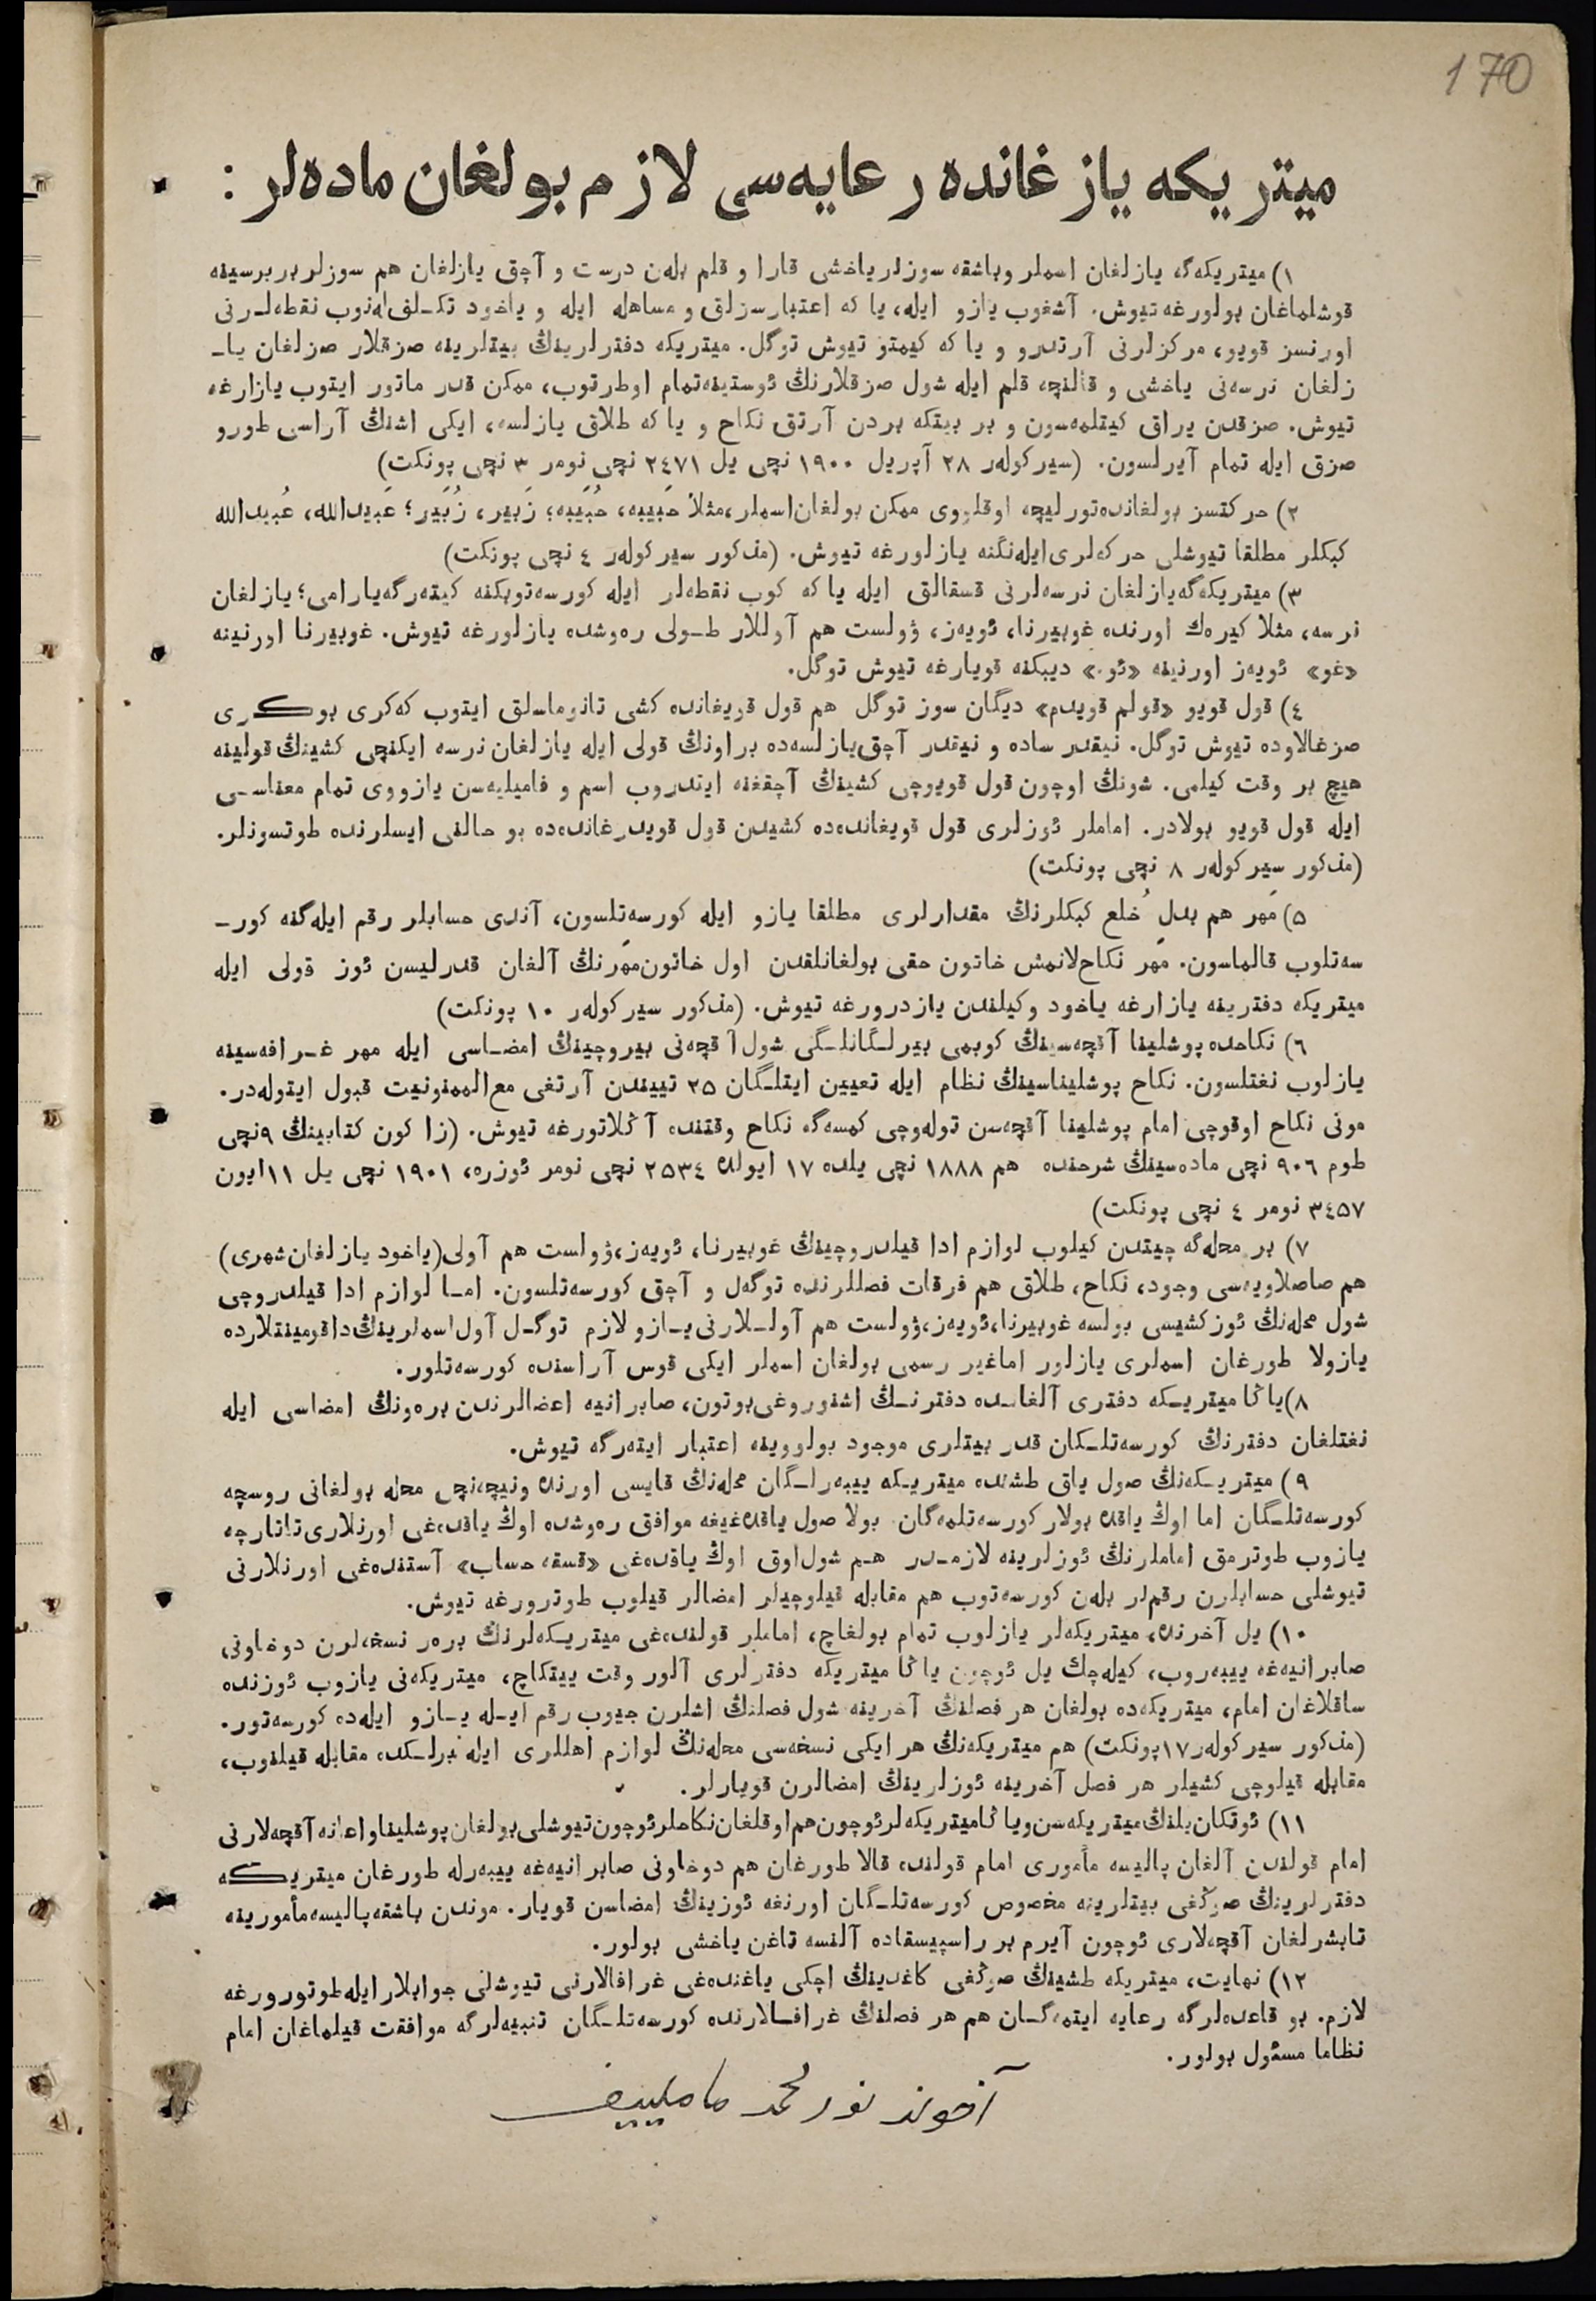 170
میتریكه یازغانده رعایه‌سی لازم بولغان ماده‌لر :
١) میتریكه‌گه یازلغان اسملر وباشقه سوزلر یاخشی قارا و قلم بله‌ن درست و آچق یازلغان هم سوزلر بربرسینه
قوشلماغان بولورغه تیوش. آشغوب یازو ایله، یا كه اعتبارسزلق و مساهله ایله و یاخود تكـلف‌له‌نوب نقطه‌لـرنی
اورنسز قویو، مركزلرنی آرتدرو و یا كه كیمتو تیوش توگل. میتریكه دفترلرینڭ بیتلرینه صزقلار صزلغان یا‍ـ
زلغان نرسه‌نی یاخشی و قالنچه قلم ایله شول صزقلارنڭ ئوستینه‌تمام اوطرتوب، ممكن قدر ماتور ایتوب یازارغه
تیوش. صزقدن یراق كیتلمه‌سون و بر بیتكه بردن آرتق نكاح و یا كه طلاق یازلسه، ایكی اشنڭ آراسی طورو
صزق ایله تمام آیرلسون. (سیركوله‌ر ٢٨ آپریل ١٩٠٠ نچی یل ٢٤٧١ نچی نومر ٣ نچی پونكت)
٢) حركتسز بولغانده‌تورلیچه اوقلووی ممكن بولغان‌اسملر،مثلا حَبیبه، حُبَیبه؛ زَبیر، زُبَیر؛ عَبیدالله، عُبیدالله
كبكلر مطلقا تیوشلی حركه‌لری‌ایله‌نگنه یازلورغه تیوش. (مذكور سیركوله‌ر ٤ نچی پونكت)
٣) میتریكه‌گه‌یازلغان نرسه‌لرنی قسقالق ایله یا كه كوب نقطه‌لر ایله كورسه‌توبكنه كیته‌رگه‌یارامی؛ یازلغان
نرسه، مثلا كیره‌ك اورنده غوبیرنا، ئویه‌ز، ۋولست هم آوللار طـولی ره‌وشده یازلورغه تیوش. غوبیرنا اورنینه
«غو» ئویه‌ز اورنینه «ئو.» دیبكنه قویارغه تیوش توگل.
٤) قول قویو «قولم قویدم» دیگان سوز توگل هم قول قویغانده كشی تانوماسلق ایتوب كه‌كری بوكـری
صزغالاوده تیوش توگل. نیقدر ساده و نیقدر آچق‌یازلسه‌ده براونڭ قولی ایله یازلغان نرسه ایكنچی كشینڭ قولینه
هیچ بر وقت كیلمی. شونڭ اوچون قول قویوچی كشینڭ آچقغنه ایتدروب اسم و فامیلیه‌سن یازووی تمام معناسـی
ایله قول قویو بولادر. اماملر ئوزلری قول قویغانده‌ده كشیدن قول قویدرغانده‌ده بو حالنی ایسلرنده طوتسونلر.
(مذكور سیركوله‌ر ٨ نچی پونكت)
٥) مَهر هم بدلِ خُلع كبكلرنڭ مقدارلری مطلقا یازو ایله كورسه‌تلسون، آندی حسابلر رقم ایله‌گنه كور‍ـ
سه‌تلوب قالماسون. مَهر نكاح‌لانمش خاتون حقی بولغانلقدن اول خاتون‌مَهرنڭ آلغان قدرلیسن ئوز قولی ایله
میتریكه دفترینه یازارغه یاخود وكیلندن یازدرورغه تیوش. (مذكور سیركوله‌ر ١٠ پونكت)
٦) نكاحده پوشلینا آقچه‌سینڭ كوبمی بیرلـگانلـگی شول‌آقچه‌نی بیروچینڭ امضـاسی ایله مهر غـرافه‌سینه
یازلوب نغتلسون. نكاح پوشلیناسینڭ نظام ایله تعیین ایتلـگان ٢٥ تییندن آرتغی مع‌الممنونیت قبول ایتوله‌در.
مونی نكاح اوقوچی امام پوشلینا آقچه‌سن توله‌وچی كمسه‌گه نكاح وقتنده آڭلاتورغه تیوش. (زاكون كتابینڭ ٩نچی
طوم ٩٠٦ نچی ماده‌سینڭ شرحنده هم ١٨٨٨ نچی یلده ١٧ ایولده ٢٥٣٤ نچی نومر ئوزره، ١٩٠١ نچی یل ١١ایون
٣٤٥٧ نومر ٤ نچی پونكت)
٧) بر محله‌گه چیتدن كیلوب لوازم ادا قیلدروچینڭ غوبیرنا، ئویه‌ز،ۋولست هم آولی(یاخود یازلغان‌شهری)
هم صاصلاویه‌سی وجود، نكاح، طلاق هم فرقات فصللرنده توگه‌ل و آچق كورسه‌تلسون. امـا لوازم ادا قیلدروچی
شول محله‌نڭ ئوزكشیسی بولسه غوبیرنا،ئویه‌ز،ۋولست هم آولـلارنی‌یـازو لازم توگـل آول‌اسملرینڭ‌داقومینتلارده
یازولا طورغان اسملری یازلور اماغیر رسمی بولغان اسملر ایكی قوس آراسنده كورسه‌تلور.
٨)یاڭامیتریـكه دفتری آلغانـده دفترنـڭ اشنوروغی‌بوتون، صابرانیه اعضالرندن بره‌ونڭ امضاسی ایله
نغتلغان دفترنڭ كورسه‌تلـكان قدر بیتلری موجود بولووینه اعتبار ایته‌رگه تیوش.
٩) میتریـكه‌نڭ صول یاق طشنده میتریـكه ییبه‌رلـگان محله‌نڭ قایسی اورنده ونیچه‌نچی محله بولغانی روسچه
كورسه‌تلـگان اما اوڭ یاقده بولار كورسه‌تلمه‌گان. بولا صول یاقده‌غیغه موافق ره‌وشده اوڭ یاقده‌غی اورنلاری‌تاتارچه
یازوب طوترمق اماملرنڭ ئوزلرینه لازمـدر هـم شول‌اوق اوڭ یاقده‌غی «قسقه حساب» آستنده‌غی اورنلارنی
تیوشلی حسابلرن رقملر بله‌ن كورسه‌توب هم مقابله قیلوچیلر امضالر قیلوب طوترورغه تیوش.
١٠) یل آخرنده، میتریكه‌لر یازلوب تمام بولغاچ، اماملر قولنده‌غی میتریـكه‌لرنڭ بره‌ر نسخه‌لرن دوخاونی
صابرانیه‌غه ییبه‌روب، كیله‌چك یل ئوچون یاڭا میتریكه دفترلری آلور وقت ییتكاچ، میتریكه‌نی یازوب ئوزنده
ساقلاغان امام، میتریكه‌ده بولغان هر فصلنڭ آخرینه شول فصلنڭ اشلرن جیوب رقم ایـله یـازو ایله‌ده كورسه‌تور.
(مذكور سیركوله‌ر١٧پونكت) هم میتریكه‌نڭ هر ایكی نسخه‌سی محله‌نڭ لوازم اهللری ایله برلـكده مقابله قیلنوب،
مقابله قیلوچی كشیلر هر فصل آخرینه ئوزلرینڭ امضالرن قویارلر.
١١) ئوتكان‌یلنڭ‌میتریكه‌سن‌ویاڭامیتریكه‌لرئوچون‌هم‌اوقلغان‌نكاحلرئوچون‌تیوشلی‌بولغان‌پوشلیناواعانه‌آقچه‌لارنی
امام قولندن آلغان پالیسه مأموری امام قولنده قالا طورغان هم دوخاونی صابرانیه‌غه ییبه‌رله طورغان میتریـكه
دفترلرینڭ صوڭغی بیتلرینه مخصوص كورسه‌تلـگان اورنغه ئوزینڭ امضاسن قویار. موندن باشقه‌پالیسه‌مأمورینه
تابشرلغان آقچه‌لاری ئوچون آیرم بر راسپیسقاده آلنسه تاغن یاخشی بولور.
١٢) نهایت، میتریكه طشینڭ صوڭغی كاغدینڭ اچكی یاغنده‌غی غرافالارنی تیوشلی جوابلارایله‌طوتورورغه
لازم. بو قاعده‌لرگه رعایه ایتمه‌گـان هم هر فصلنڭ غرافـالارنده كورسه‌تلـگان تنبیه‌لرگه موافقت قیلماغان امام
نظاما مسئول بولور.
آخوند نورمحمد مامليیف